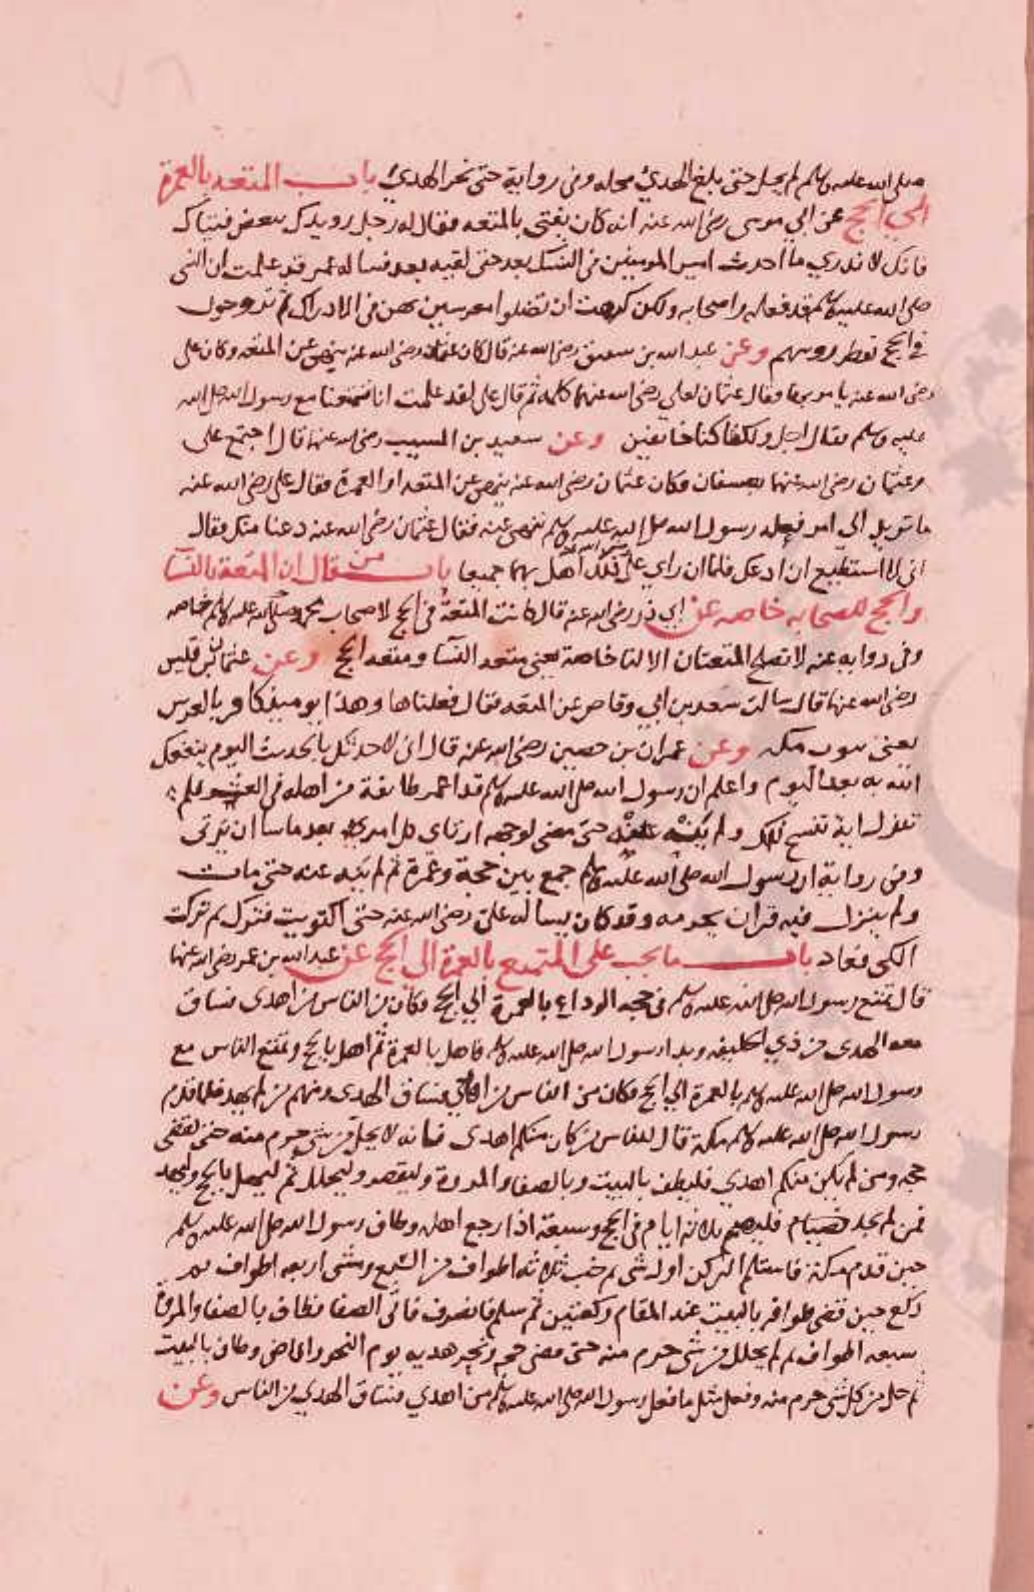 صلى الله عليه وسلم لم يحل حتى بلغ الهدي محله وفي رواية حتى نحر الهدي باب المتعه بالعمرة
الي الحج عن ابي موسى رضي الله عنه انه كان يفتي بالمتعه فقال له رجل رويدك ببعض فتياك
فانك لا تدري ما احدث امير المومنين في النسك بعد حتى لقيه بعد فساله عمر قد علمت ان النبي
صلى الله عليه وسلم قد فعله واصحابه ولكن كرهت ان تضلوا معرسين بهن في الاراك ثم تروحون
في الحج تقطر روسهم وعن عبد الله بن شقيق رضي الله عنه قال كان عثمان رضي الله عنه ينهى عن المتعه وكان على
رضي الله عنه يامر بها وقال عثمان لعلي رضي الله عنهما كلمه ثم قال علي لقد علمت انا تمتعنا مع رسول الله صلى الله
عليه وسلم فقال اجل ولكنا كنا خايفين وعن سعيد بن المسيب رضي الله عنه قال اجتمع على
وعثمان رضي الله عنهما بعسفان فكان عثمان رضي الله عنه ينهى عن المتعه او العمرة فقال علي رضي الله عنه
ما تريد الى امر فعله رسول الله صلى الله عليه وسلم تنهى عنه فقال عثمان رضي الله عنه دعنا منك فقال
اني لا استطيع ان ادعك فلما ان راي علي ذلك اهل بهما جميعا باب من قال ان المتعة بالنسآ
والحج للصحابه خاصه عن ابي ذر رضي الله عنه قال كانت المتعة في الحج لاصحاب محمد صلى الله عليه وسلم خاصه
وفي روايه عنه لا تصلح المتعتان الا لنا خاصة يعني متعه النسآ ومتعه الحج وعن غنيم بن قيس
رضي الله عنه قال سالت سعد بن ابي وقاص عن المتعه فقال فعلناها وهذا يوميذ كافر بالعرش
يعني بيوت مكه وعن عمران بن حصين رضي الله عنه قال اني لاحدثك بالحديث اليوم ينفعك
الله به بعد اليوم واعلم ان رسول الله صلى الله عليه وسلم قد اعمر طايفة من اهله في العشر فلم
تنزل اية تنسخ ذلك ولم ينه عنه حتى مضى لوجهه ارتاى كل امرئ بعد ما شا ان يرتى
وفي رواية ان رسول الله صلى الله عليه وسلم جمع بين حجة وعمرة ثم لم ينه عنه حتى مات
ولم ينزل فيه قران يحرمه وقد كان يسلم على رضي الله عنه حتى اكتويت فترك ثم تركت
الكي فعاد باب ما يجب على المتمتع بالعمرة الى الحج عن عبد الله بن عمر رضي الله عنهما
قال تمتع رسول الله صلى الله عليه وسلم في حجه الوداع بالعمرة الي الحج وكان من الناس من اهدى فساق
معه الهدي من ذي الحليفه وبدا رسول الله صلى الله عليه وسلم فاهل بالعمرة ثم اهل بالحج وتمتع الناس مع
رسول الله صلى الله عليه وسلم بالعمرة الي الحج فكان من الناس من اهدى فساق الهدي ومنهم من لم يهد فلما قدم
رسول الله صلى الله عليه وسلم مكة قال للناس من كان منكم اهدى فانه لا يحل من شي حرم منه حتى يقضي
حجه ومن لم يكن منكم اهدي فليطف بالبيت وبالصفا والمروة وليقصر وليحلل ثم ليهل بالحج وليهد
فمن لم يجد فليصم ثلاثه ايام في الحج وسبعة اذا رجع الى اهله وطاف رسول الله صلى الله عليه وسلم
حين قدم مكة فاستلم الركن اول شي ثم خب ثلاثه اطواف من السبع ومشى اربعه اطواف ثم
ركع حين قضى طوافه بالبيت عند المقام ركعتين ثم سلم فانصرف فاتى الصفا فطاف بالصفا والمروة
سبعه اطواف ثم لم يحلل من شي حرم منه حتى قضى حجه ونحر هديه يوم النحر وافاض وطاف بالبيت
ثم حل من كل شي حرم منه وفعل مثل ما فعل رسول الله صلى الله عليه وسلم من اهدي فساق الهدي من الناس وعن